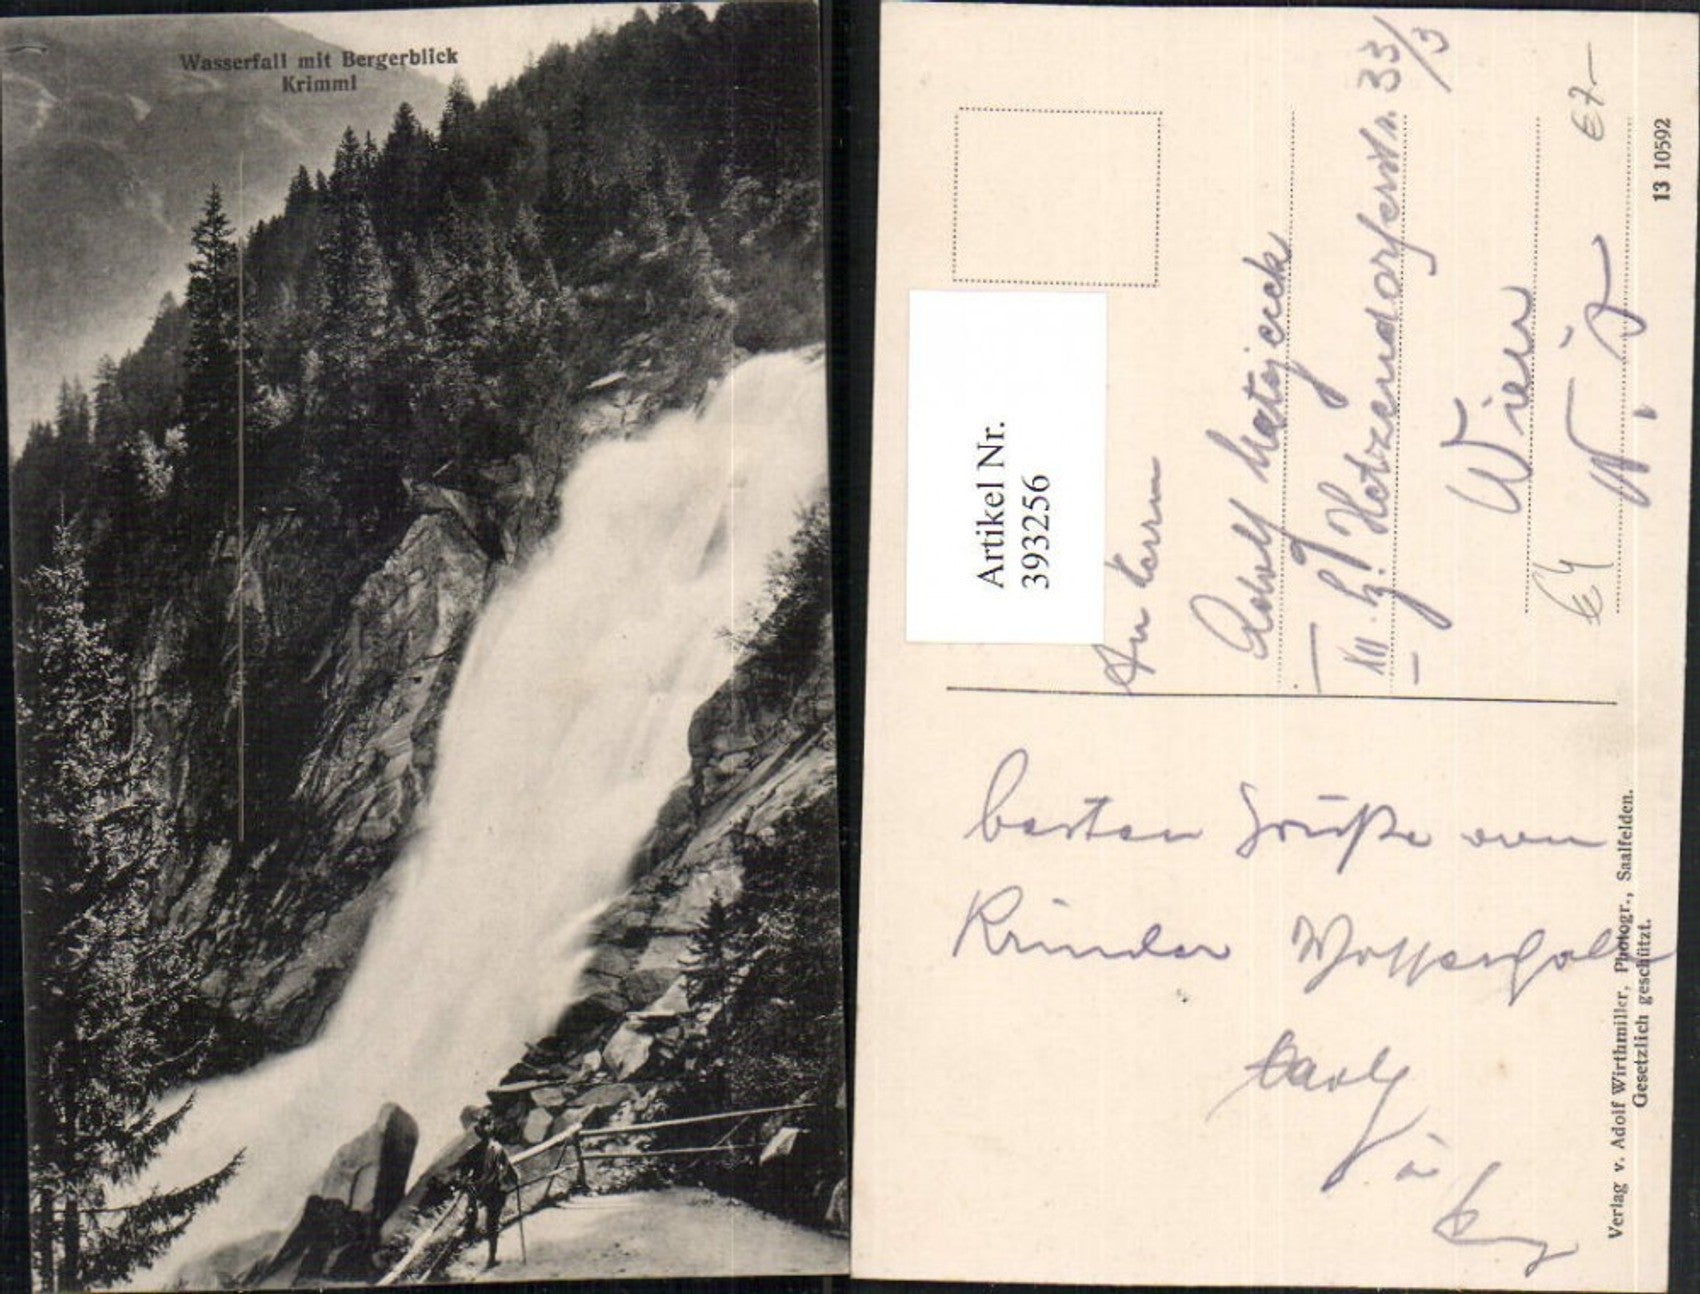 Wasserfall mit Bergerblick
Krimml
Artikel Nr.
393256
Adolf Matejcek
XII. Hetzendorferstr. 33/3
Wien
W.
€4
€7-
13 10592
besten Grüße vom
Krimler Wasserfall
Verlag v. Adolf Wirthmiller, Photogr., Saalfelden.
Gesetzlich geschützt.